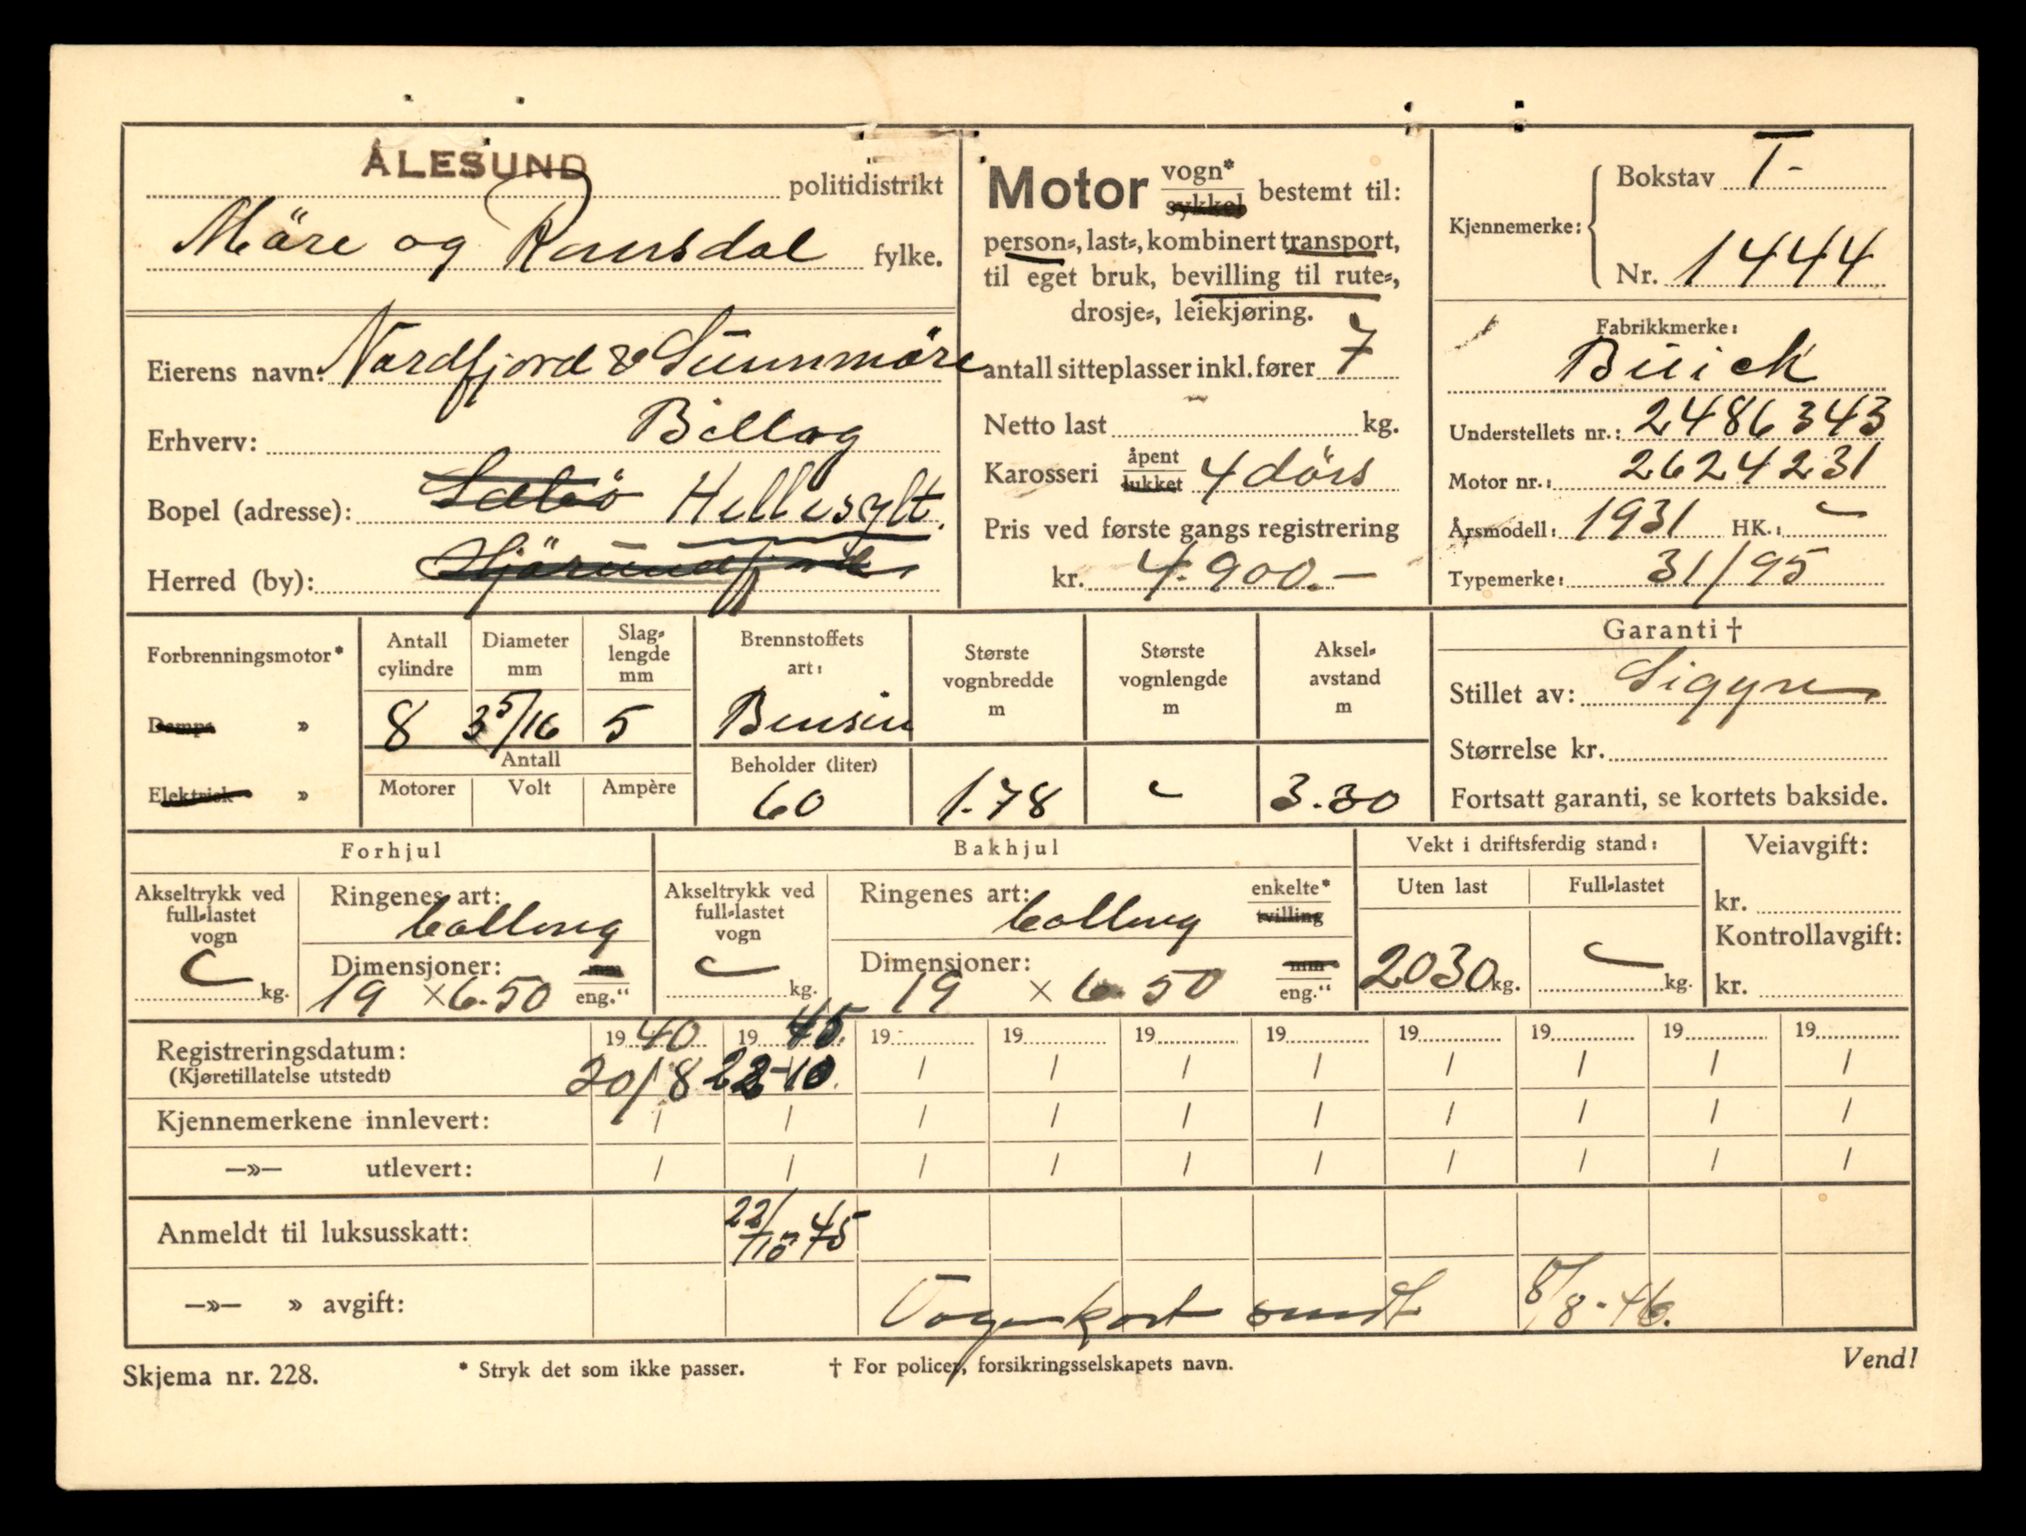 ÅLESUND politidistrikt
Möre og Romsdal fylke.
Eierens navn: Nordfjord & Sunnmöre
Erhverv: Billag
Bopel (adresse): Sæbö Hellesylt.
Herred (by): Hjörundfjord
Motor vogn* sykkel bestemt til:
person-, last-, kombinert transport,
til eget bruk, bevilling til rute-,
drosje-, leiekjøring.
antall sitteplasser inkl. fører 7
Netto last kg.
Karosseri åpent lukket 4 dörs
Pris ved første gangs registrering
kr. 4.900.-
Kjennemerke: Bokstav T-
Nr. 1444
Fabrikkmerke:
Buick
Understellets nr.: 2486343
Motor nr.: 2624231
Årsmodell: 1931 HK.: -
Typemerke: 31/95
Forbrenningsmotor*
Damp- »
Elektrisk »
Antall cylindre
8
Diameter mm
3 5/16
Slag-lengde mm
5
Antall
Motorer Volt Ampère
Brennstoffets art:
Bensin
Beholder (liter)
60
Største vognbredde m
1.78
Største vognlengde m
-
Aksel-avstand m
3.30
Garanti †
Stillet av: Sigyn
Størrelse kr.
Fortsatt garanti, se kortets bakside.
Forhjul
Akseltrykk ved full-lastet vogn
- kg.
Ringenes art: ballong
Dimensjoner: mm
19 × 6.50 eng."
Bakhjul
Akseltrykk ved full-lastet vogn
- kg.
Ringenes art: ballong enkelte* tvilling
Dimensjoner: mm
19 × 6.50 eng."
Vekt i driftsferdig stand:
Uten last Full-lastet
2030 kg. - kg.
Veiavgift:
kr.
Kontrollavgift:
kr.
Registreringsdatum: 1940 1945. 19 19 19 19 19 19 19 19
(Kjøretillatelse utstedt) 20/8 22-10. / / / / / / / /
Kjennemerkene innlevert: / / / / / / / / / /
—»— utlevert: / / / / / / / / / /
Anmeldt til luksusskatt: 22/10-45
—»— » avgift: Vognkort sendt 8/8-46.
Skjema nr. 228. * Stryk det som ikke passer. † For policer, forsikringsselskapets navn. Vend!